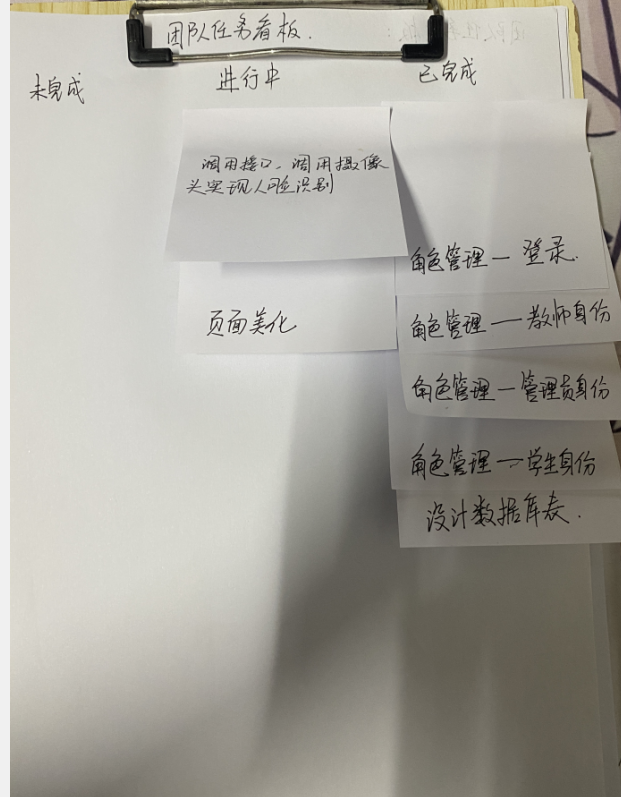 团队任务看板.
未完成
进行中
已完成
调用接口、调用摄像
头实现人脸识别
页面美化
角色管理一登录.
角色管理——教师身份
角色管理一管理员身份
角色管理一学生身份
设计数据库表.